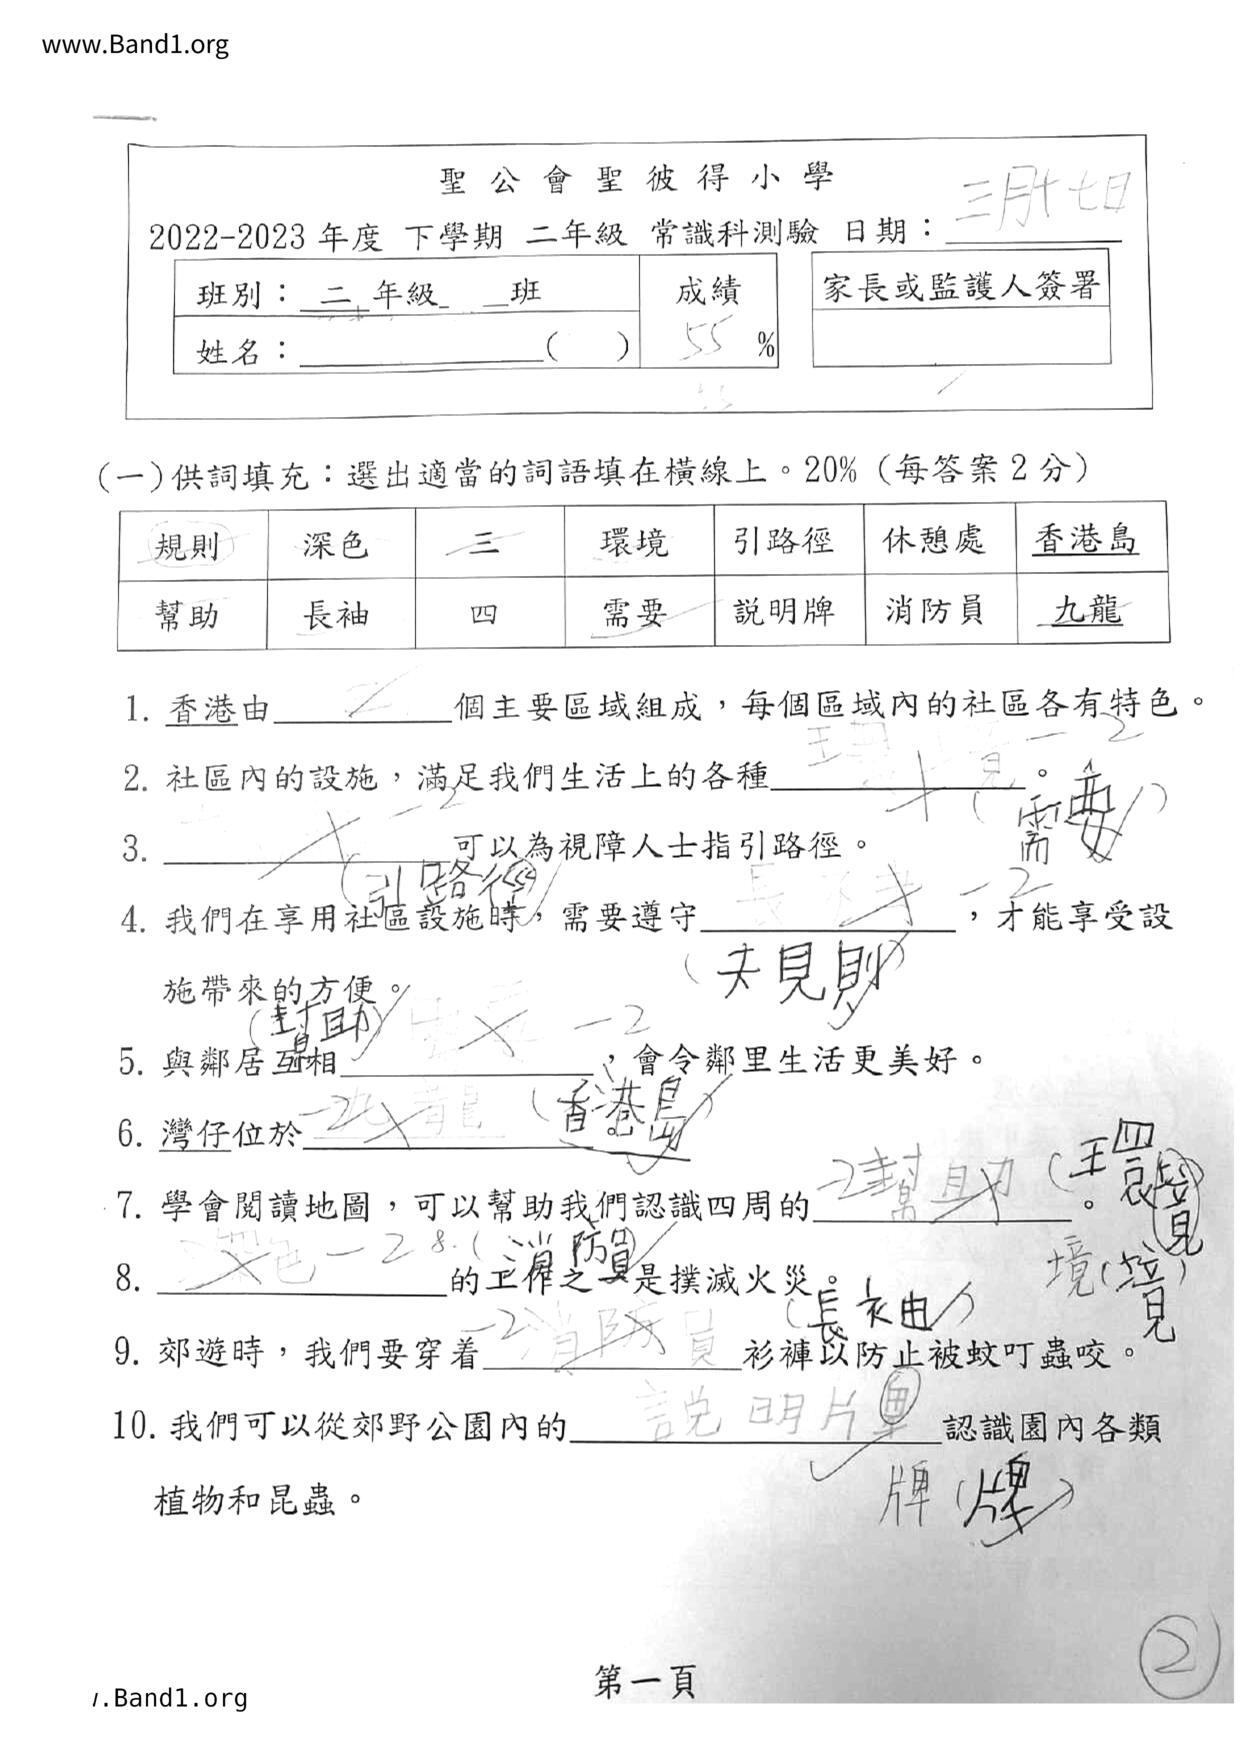 www.Band1.org
聖公會聖彼得小學
2022-2023 年度 下學期 二年級 常識科測驗 日期：三月十七日
班別：二年級 班 成績 家長或監護人簽署
姓名： ( ) 55 %
(一)供詞填充：選出適當的詞語填在橫線上。20%（每答案2分）
規則 深色 三 環境 引路徑 休憩處 香港島
幫助 長袖 四 需要 說明牌 消防員 九龍
1. 香港由 個主要區域組成，每個區域內的社區各有特色。
-2
2. 社區內的設施，滿足我們生活上的各種 。
(需要)
-2
3. 可以為視障人士指引路徑。
(引路徑)
-2
4. 我們在享用社區設施時，需要遵守 ，才能享受設
(規則)
施帶來的方便。
(幫助) -2
5. 與鄰居互相 ，會令鄰里生活更美好。
-2 九龍 (香港島)
6. 灣仔位於
-2 幫助 (環境)
7. 學會閱讀地圖，可以幫助我們認識四周的 。
深色 -2 8.(消防員) 境(境)
8. 的工作之一是撲滅火災。
(長袖)
-2 消防員
9. 郊遊時，我們要穿着 衫褲以防止被蚊叮蟲咬。
說明牌
10. 我們可以從郊野公園內的 認識園內各類
牌(牌)
植物和昆蟲。
2
第一頁
.Band1.org